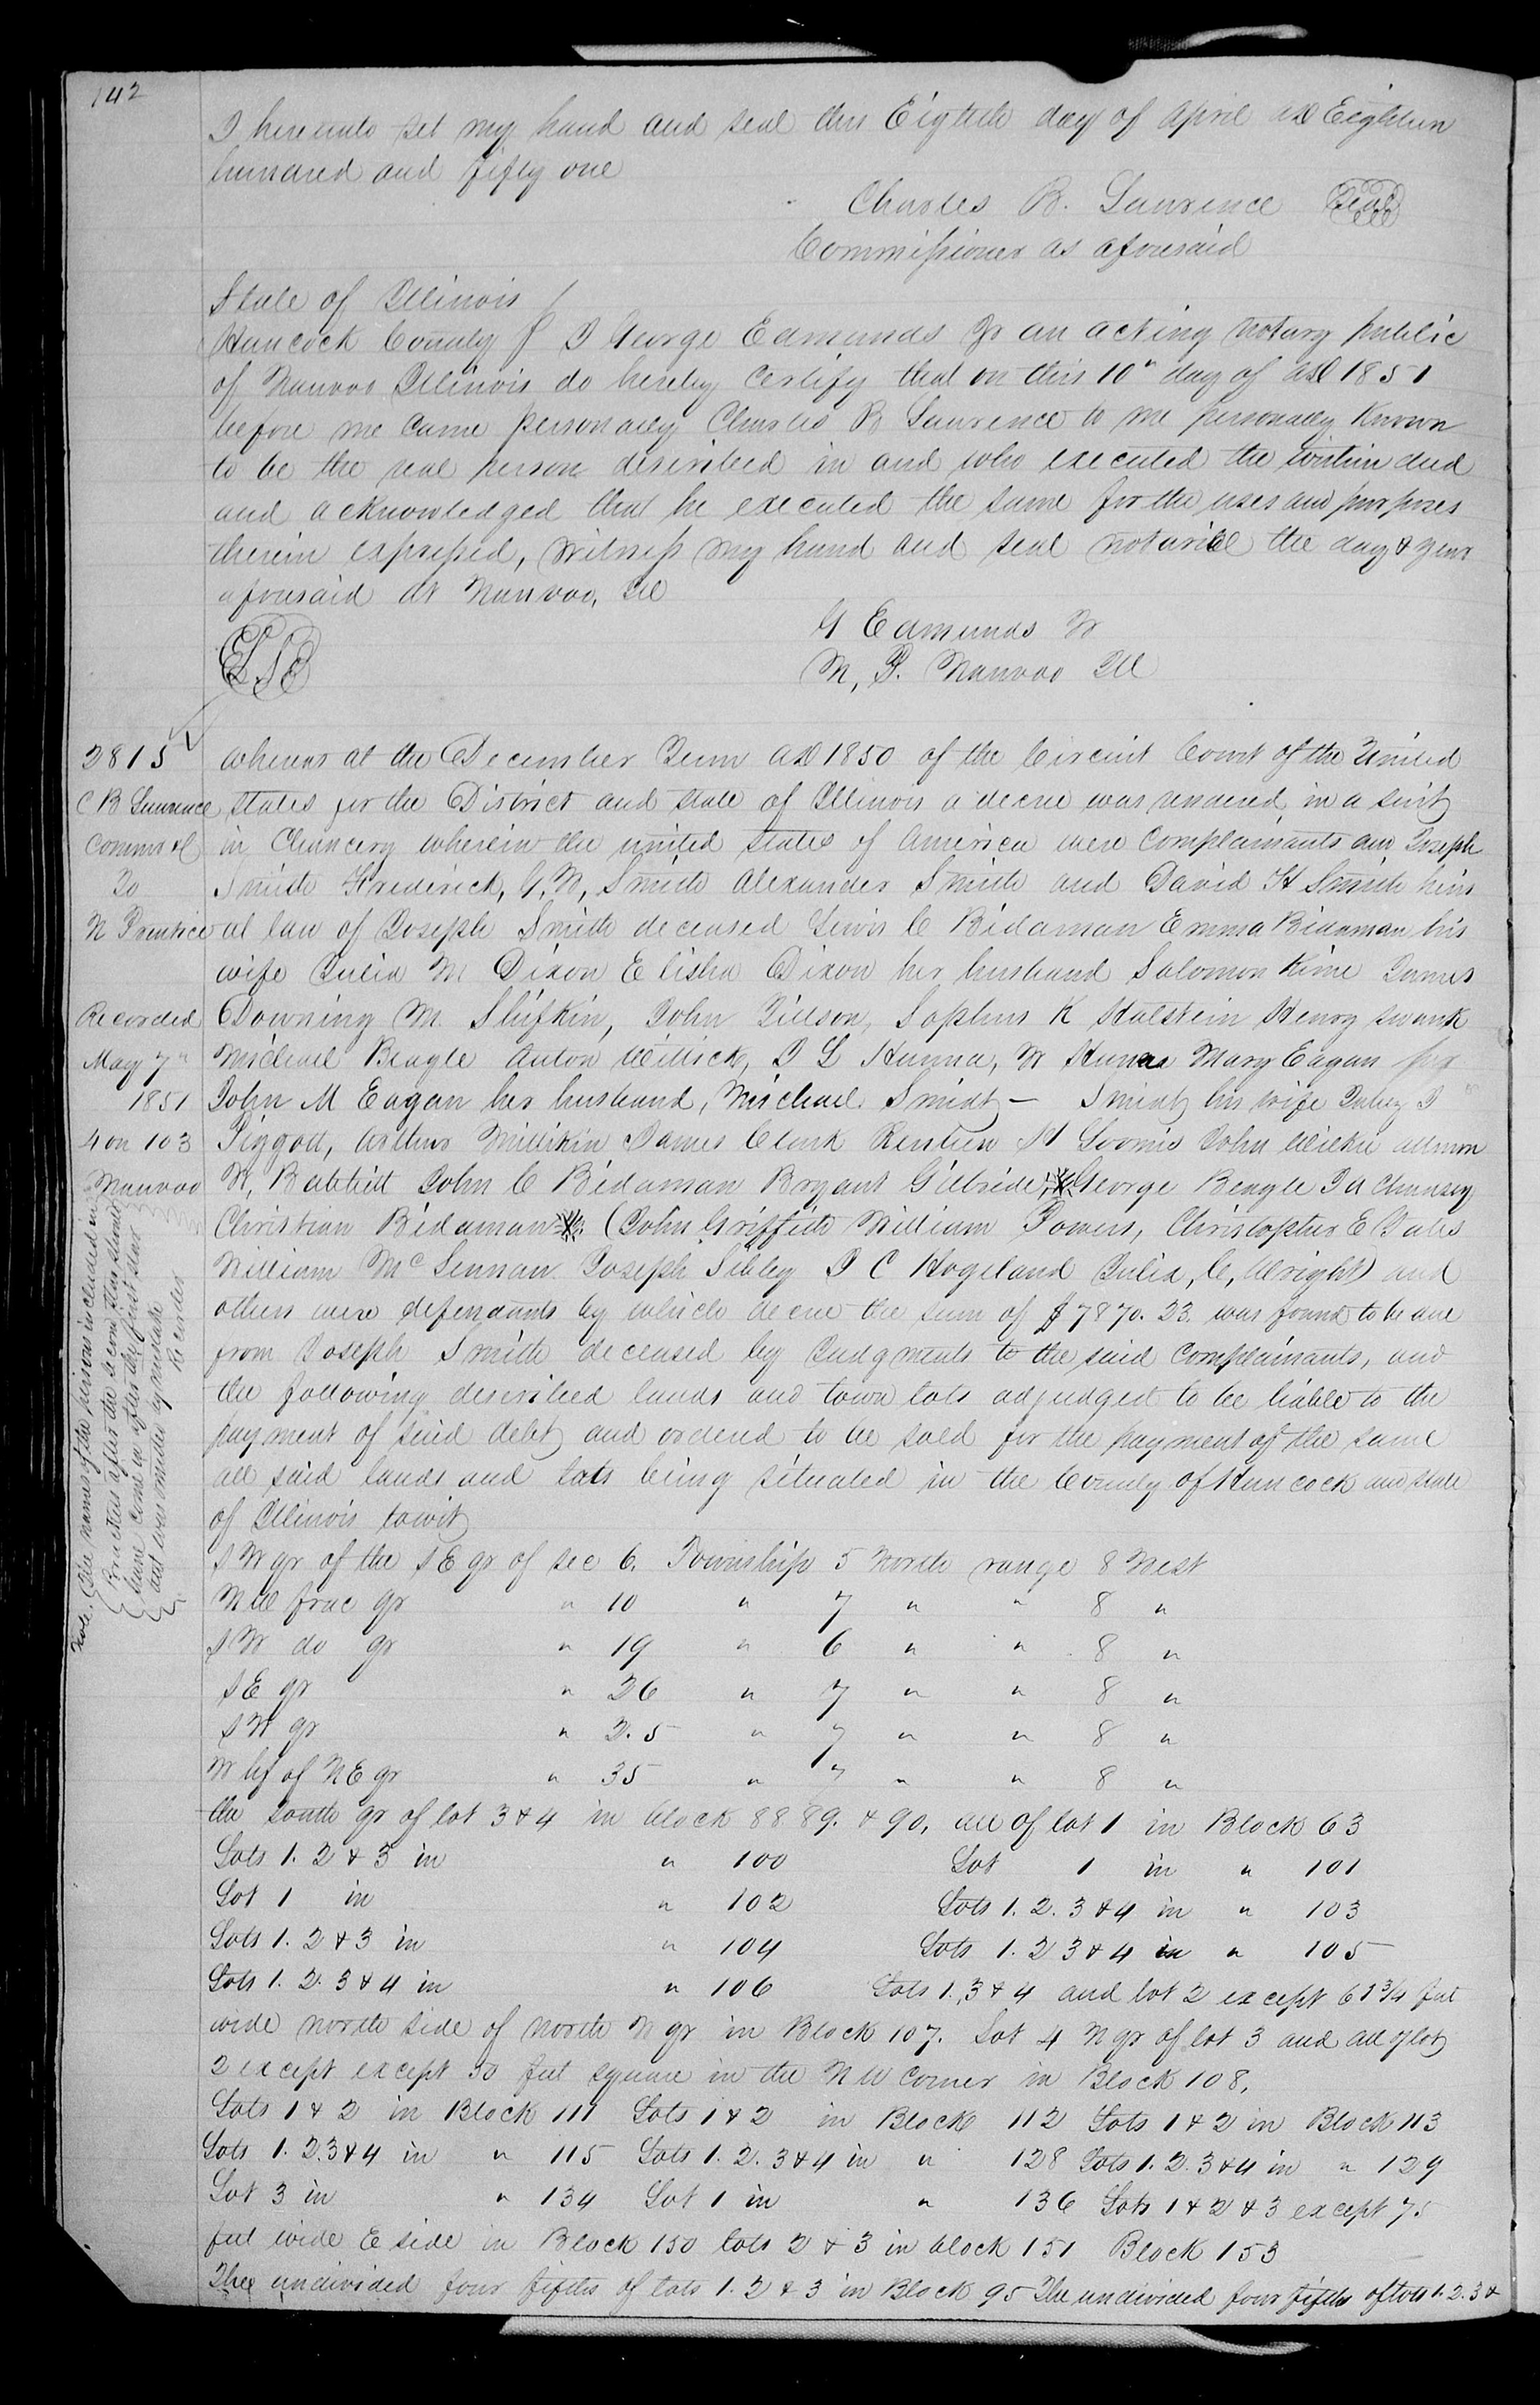 142
I hereunto set my hand and seal this Eighth day of April AD Eighteen
hundred and fifty one
Charles B. Lawrence Seal
Commissioner as aforesaid
State of Illinois
Hancock County I George Edmunds Jr an acting notary public
of Nauvoo Illinois do hereby certify that on this 10" day of AD 1851
before me came personally Charles B Lawrence to me personally known
to be the real person described in and who executed the within deed
and acknowledged that he executed the same for the uses and purposes
therein expressed, Witness my hand and seal notarial the day & year
aforesaid at Nauvoo, Ill
G Edmunds Jr
N, P. Nauvoo Ill
2815
C B Lawrence
Commr &c
To
N Prentice
Recorded
May 7"
1851
4 on 103
Nauvoo
Note. The names of the persons included in
Brackets after the second star should
have come in after the first star
and was omitted by mistake
Recorder
Whereas at the December Term AD 1850 of the Circuit Court of the United
States for the District and state of Illinois a decree was rendered in a suit
in Chancery wherein the united states of America were Complainants and Joseph
Smith Frederick, G, W, Smith Alexander Smith and David H Smith heirs
at law of Joseph Smith deceased Lewis C Bidaman Emma Bidaman his
wife Julia M Dixon Elisha Dixon her husband Solomon Kime James
Downing M. Shifkin, John Tillson, Sophus K Halstein Henry Swank
Michael Beagle Anton Willick, J L Hanna, W Mary Eagan
John M Eagan her husband, Michael Smidt — Smidt his wife I
Piggott, Arthur Millikin James Clark Reuben H Loomis John Wilkie Almon
W, Babbitt John C Bidaman Bryant Gilbride, * George Beagle Chansey
Christian Bidaman * (John Griffith William Powers, Christopher E Yates
William Mc Lennan Joseph Sibley J C Hogeland Julia, C, Wright) and
others were defendants by which decree the sum of $7870.23. was found to be due
from Joseph Smith deceased by Judgments to the said Complainants, and
the following described lands and town lots adjudged to be liable to the
payment of said debt and ordered to be sold for the payment of the same
all said lands and lots being situated in the County of Hancock and state
of Illinois towit
S W qr of the S E qr of sec 6. Township 5 North range 8 West
N W frac qr " 10 " 7 " " 8 "
S W do qr " 19 " 6 " " 8 "
S E qr " 26 " 7 " " 8 "
S W qr " 2.5 " 7 " " 8 "
W hf of N E qr " 35 " 7 " " 8 "
the south qr of lot 3 & 4 in block 88. 89. & 90, all of lot 1 in Block 63
Lots 1. 2 & 3 in " 100 Lot 1 in " 101
Lot 1 in " 102 Lots 1. 2. 3 & 4 in " 103
Lots 1. 2 & 3 in " 104 Lots 1. 2 3 & 4 in " 105
Lots 1. 2. 3 & 4 in " 106 Lots 1., 3 & 4 and lot 2 except 61 3/4 feet
wide north side of north W qr in Block 107. Lot 4 N qr of lot 3 and all of lot
2 except except 50 feet square in the N W corner in Block 108,
Lots 1 & 2 in Block 111 Lots 1 & 2 in Block 112 Lots 1 & 2 in Block 113
Lots 1. 2. 3 & 4 in " 115 Lots 1. 2. 3 & 4 in " 128 Lots 1. 2. 3 & 4 in " 129
Lot 3 in " 134 Lot 1 in " 136 Lots 1 & 2 & 3 except 75
feet wide E side in Block 150 lots 2 & 3 in block 151 Block 153
The undivided four fifths of lots 1. 2 & 3 in Block 95 The undivided four fifths of lots 1. 2. 3 &